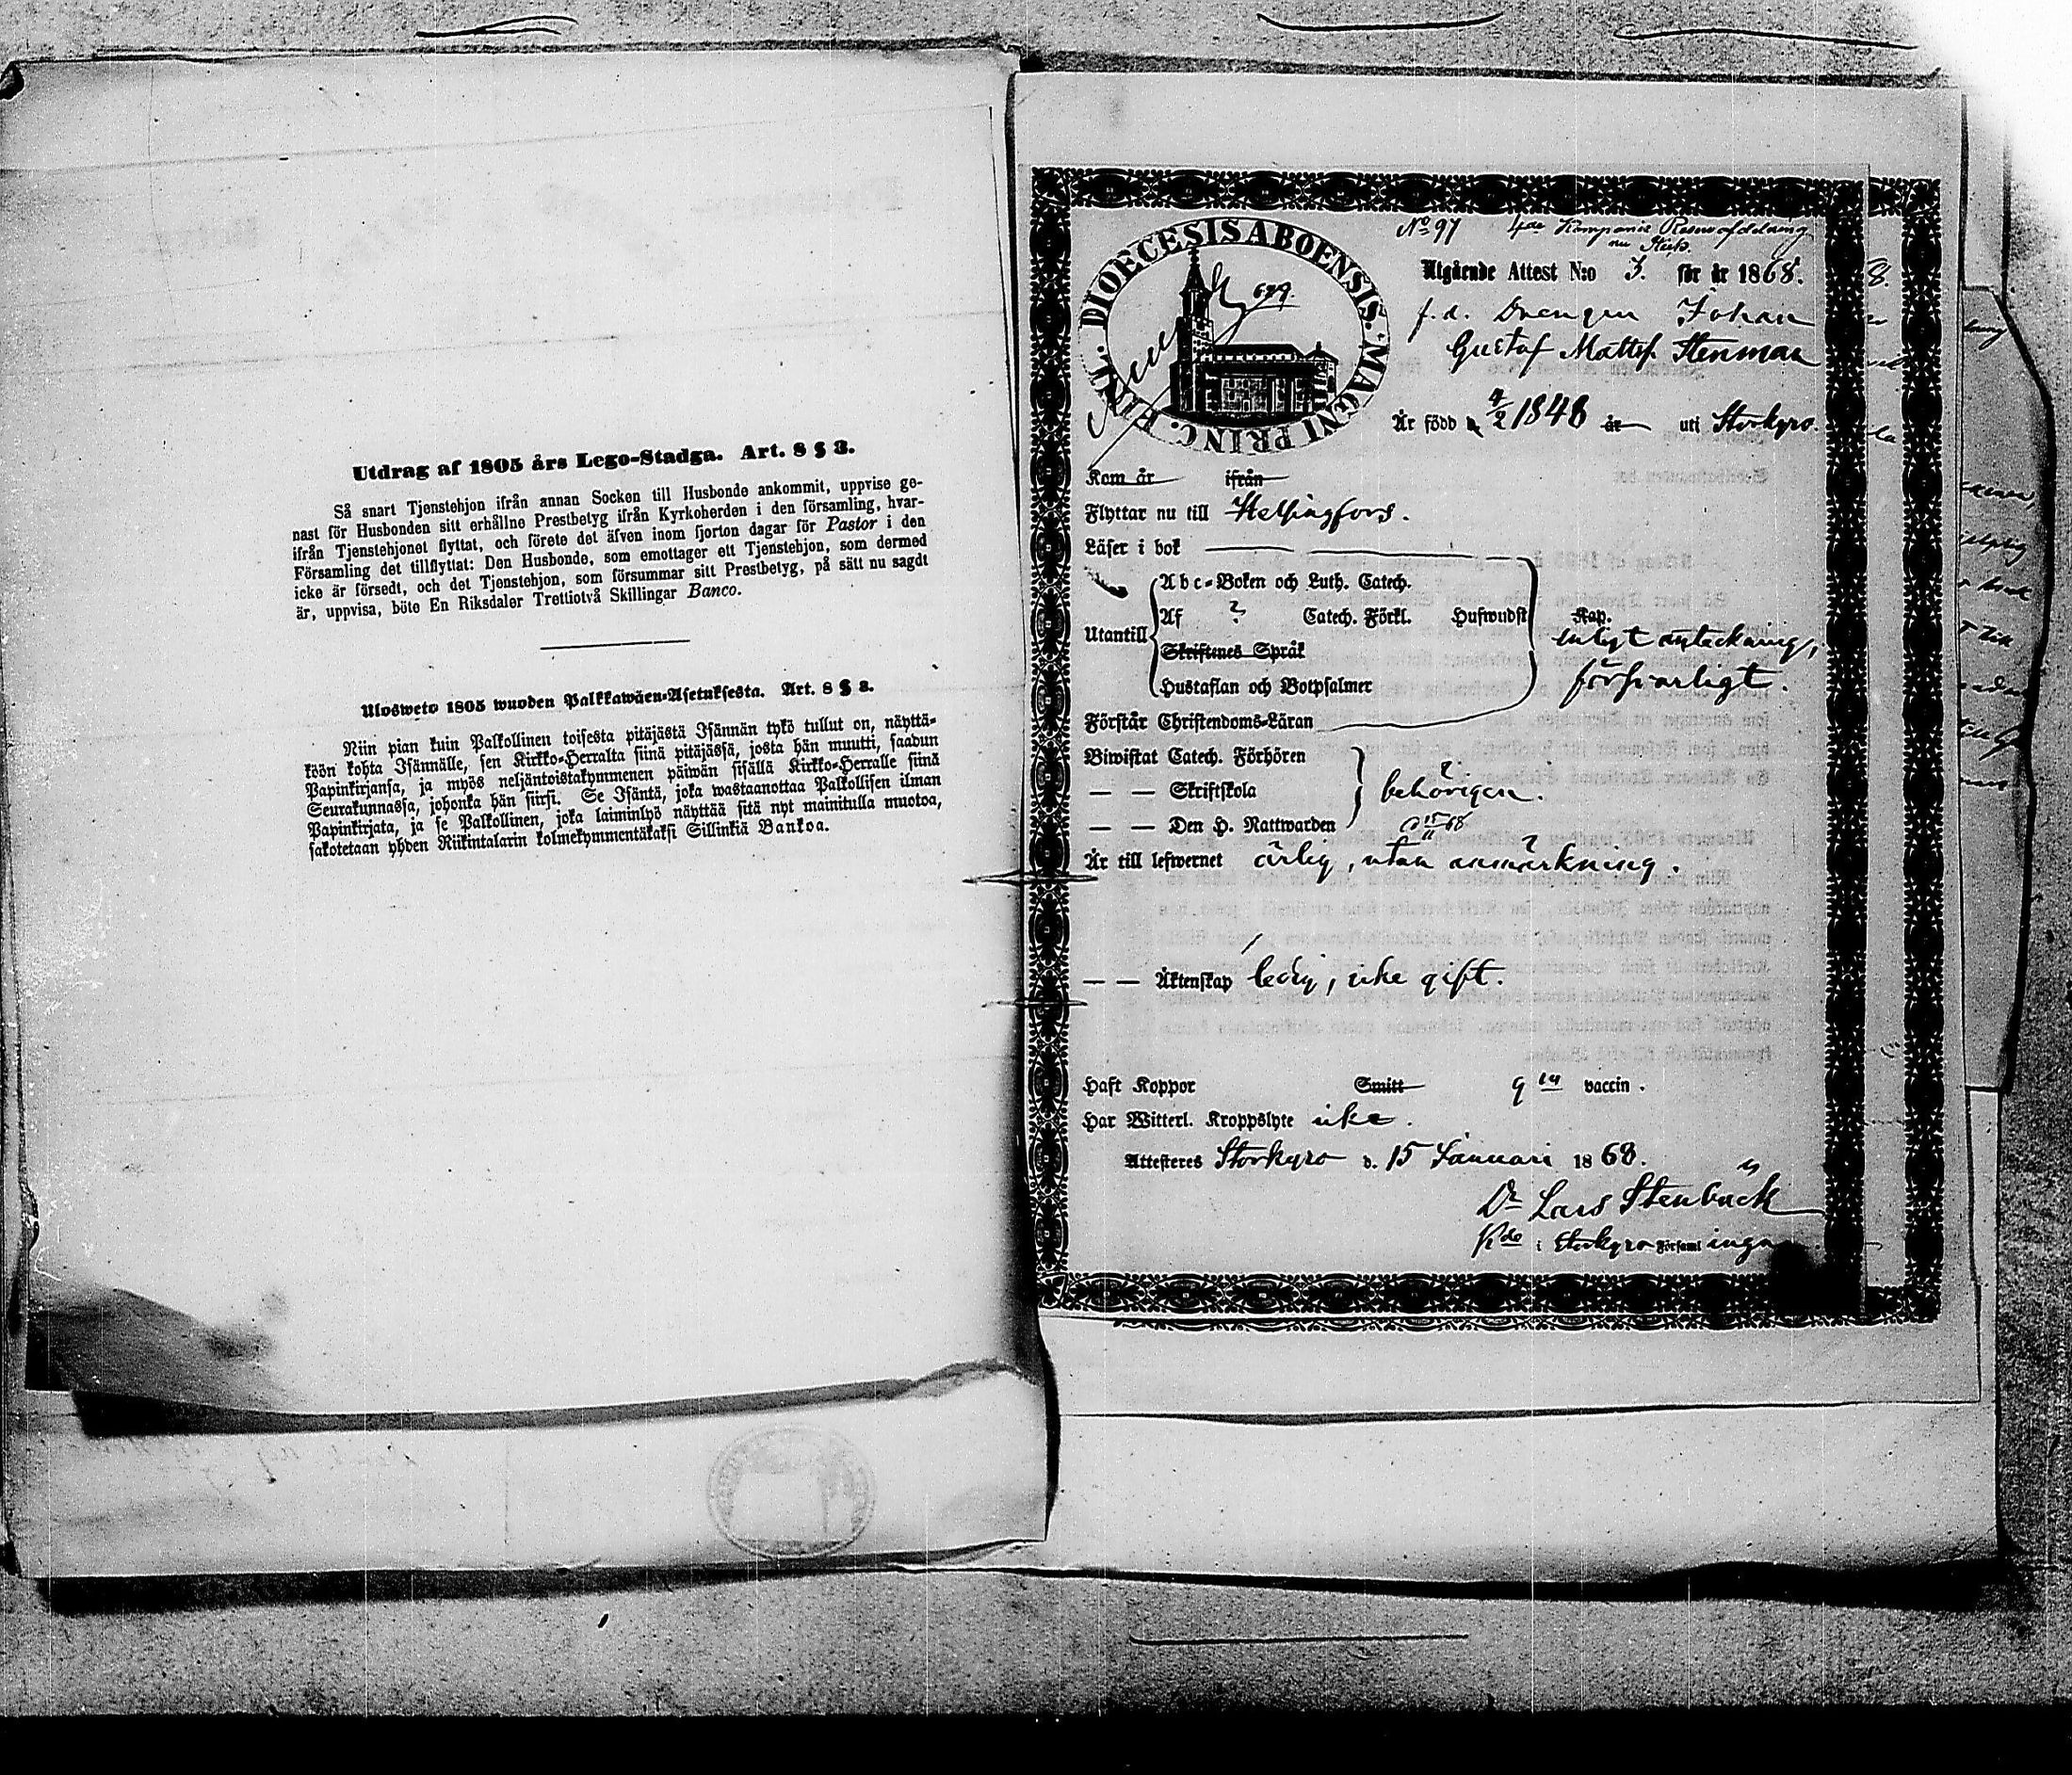 Utdrag af 1805 års Lego-Stadga. Art. 8 § 3.
Så snart Tjenstehjon ifrån annan Socken till Husbonde ankommit, uppvise ge-
nast för Husbonden sitt erhållne Prestbetyg ifrån Kyrkoherden i den församling, hvar-
ifrån Tjenstehjonet flyttat, och förete det äfven inom fjorton dagar för Pastor i den
Församling det tillflyttat: Den Husbonde, som emottager ett Tjenstehjon, som dermed
icke är försedt, och det Tjenstehjon, som försummar sitt Prestbetyg, på sätt nu sagdt
är, uppvisa, böte En Riksdaler Trettiotvå Skillingar Banco.
Ulosweto 1805 wuoden Palkkawäen-Asetuksesta. Art. 8 § 3.
Niin pian kuin Palkollinen toisesta pitäjästä Isännän tykö tullut on, näyttä-
köön kohta Isännälle, sen Kirkko-Herralta siinä pitäjässä, josta hän muutti, saadun
Papinkirjansa, ja myös neljäntoistakymmenen päiwän sisällä Kirkko-Herralle siinä
Seurakunnassa, johonka hän siirsi. Se Isäntä, joka wastaanottaa Palkollisen ilman
Papinkirjata, ja se Palkollinen, joka laiminlyö näyttää sitä nyt mainitulla muotoa,
sakotetaan yhden Riikintalarin kolmekymmentäkaksi Sillinkiä Bankoa.
No 97 4de Kompanie
DIOECESIS ABOENSIS. MAGNI PRINC. FINL.
Utgående Attest N:o 3. för år 1868.
f. d. Drengen Johan
Gustaf Matts. Stenman
Är född d. 4/2 1848 år uti Storkyro.
Kom år ifrån
Flyttar nu till Helsingfors.
Läser i bok
Utantill
Abc-Boken och Luth. Catech.
Af ? Catech. Förkl. Hufwudst Kap.
Skriftenes Språk
Hustaflan och Botpsalmer
enligt anteckning,
försvarligt.
Förstår Christendoms-Läran
Biwistat Catech. Förhören
— — Skriftskola
behörigen.
— — Den H. Nattwarden
Är till lefwernet ärlig, utan anmärkning.
— — Äktenskap ledig, icke gift.
Haft Koppor Smitt vaccin.
Har Witterl. Kroppslyte icke.
Attesteres Storkyro d. 15 Januari 1868.
Dr Lars Stenbäck
i Storkyro Församl